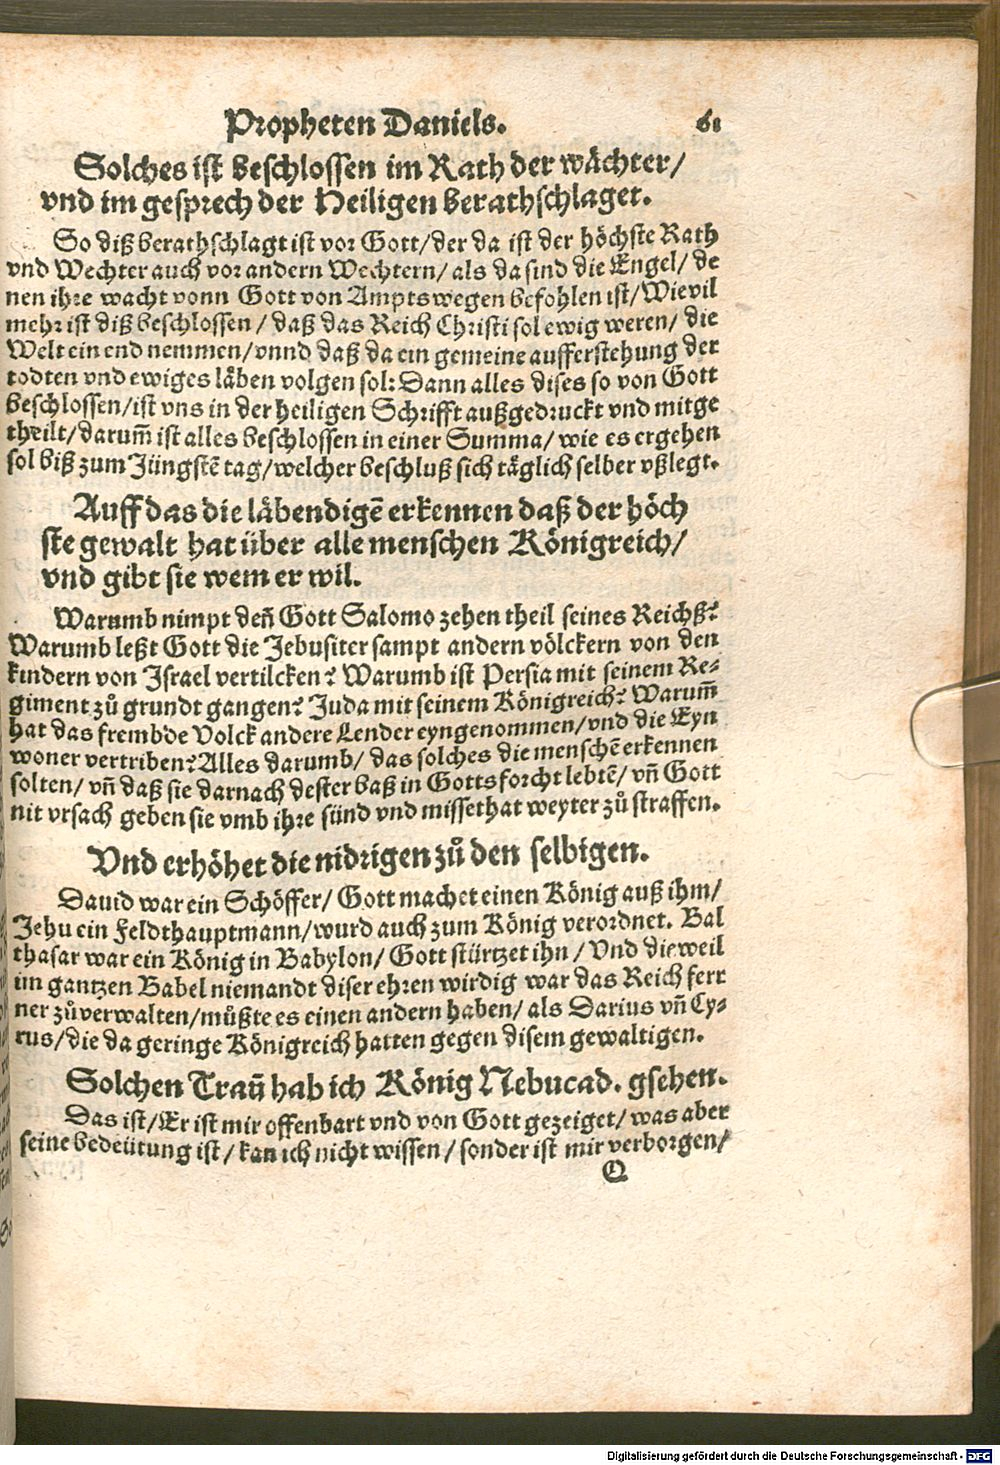 Propheten Daniels. 61
Solches ist beschlossen im Rath der wächter/
vnd im gesprech der Heiligen berathschlaget.
So diß berathschlagt ist vor Gott/der da ist der höchste Rath
vnd Wechter auch vor andern Wechtern/ als da sind die Engel/ de
nen ihre wacht vonn Gott von Ampts wegen befohlen ist/ Wievil
mehr ist diß beschlossen / daß das Reich Christi sol ewig weren/ die
Welt ein end nemmen/vnnd daß da ein gemeine aufferstehung der
todten vnd ewiges läben volgen sol: Dann alles dises so von Gott
beschlossen/ist vns in der heiligen Schrifft außgedruckt vnd mitge
theilt/darum̃ ist alles beschlossen in einer Summa/ wie es ergehen
sol biß zum Jüngstẽ tag/welcher beschluß sich täglich selber vßlegt.
Auff das die läbendigẽ erkennen daß der höch
ste gewalt hat über alle menschen Königreich/
vnd gibt sie wem er wil.
Warumb nimpt deñ Gott Salomo zehen theil seines Reichß?
Warumb leßt Gott die Jebusiter sampt andern völckern von den
kindern von Israel vertilcken? Warumb ist Persia mit seinem Re-
giment zů grundt gangen? Juda mit seinem Königreich? Warum̃
hat das frembde Volck andere Lender eyngenommen/vnd die Eyn
woner vertriben? Alles darumb/ das solches die menschẽ erkennen
solten/ vñ daß sie darnach dester baß in Gotts forcht lebtẽ/ vñ Gott
nit vrsach geben sie vmb ihre sünd vnd missethat weyter zů straffen.
Vnd erhöhet die nidrigen zů den selbigen.
Dauid war ein Schöffer/ Gott machet einen König auß ihm/
Jehu ein Feldthauptmann/wurd auch zum König verordnet. Bal
thasar war ein König in Babylon/ Gott stürtzet ihn / Vnd die weil
im gantzen Babel niemandt diser ehren wirdig war das Reich ferr
ner zů verwalten/müßte es einen andern haben/ als Darius vñ Cy-
rus/die da geringe Königreich hatten gegen disem gewaltigen.
Solchen Trau᷈ hab ich König Nebucad. gsehen.
Das ist/Er ist mir offenbart vnd von Gott gezeiget/ was aber
seine bedeütung ist/ kan ich nicht wissen/ sonder ist mir verborgen/
Q
Digitalisierung gefördert durch die Deutsche Forschungsgemeinschaft - DFG